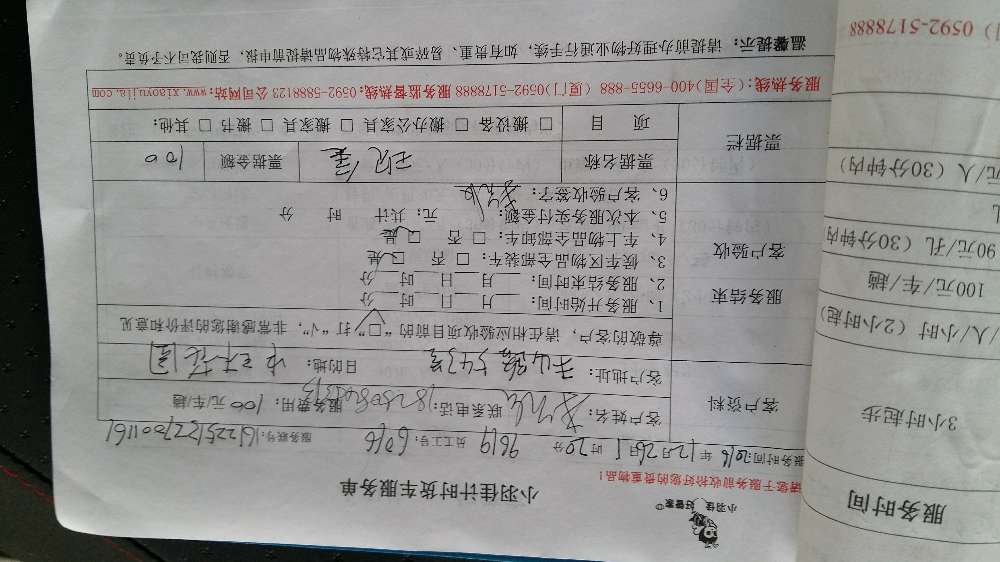 小羽佳 好管家
小羽佳计时货车服务单
请您于服务前收拾好您的贵重物品！
服务时间：2016年12月26日 时20分 员工工号：6016 服务账号：
客户资料
客户姓名： 联系电话： 服务费用：100元/车/趟
客户地址： 543号 目的地：
尊敬的客户，请在相应验收项目前的“□”打“√”，非常感谢您的评价和意见
服务结束
客户验收
1、服务开始时间： 月 日 时 分
2、服务结束时间： 月 日 时 分
3、候车区物品全部车装：□ 否 □ 是
4、车上物品全部卸车：□ 否 □ 是
5、本次服务实付金额： 元；共计 时 分
6、客户验收签字：
票据栏
票据名称 现金 票据金额 100
项 目 □ 搬设备 □ 搬办公家具 □ 搬家具 □ 搬书 □ 其他：
服务热线：(全国)400-6655-888 (厦门)0592-5178888 服务监督热线：0592-5888123 公司网站：www.xiaoyujia.com
温馨提示：请提前办理好物业通行手续，如有贵重、易碎或其它特殊物品请提前申报，否则我司不予负责。
服务时间
3小时起步
人/小时（2小时起）
100元/车/趟
90元/孔（30分钟内）
元/人（30分钟内）
0592-5178888